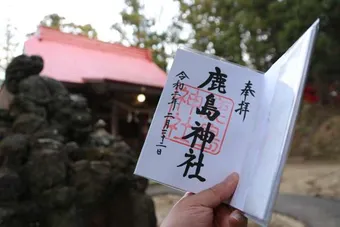 奉拝
鹿島神社
令和二年二月二十二日